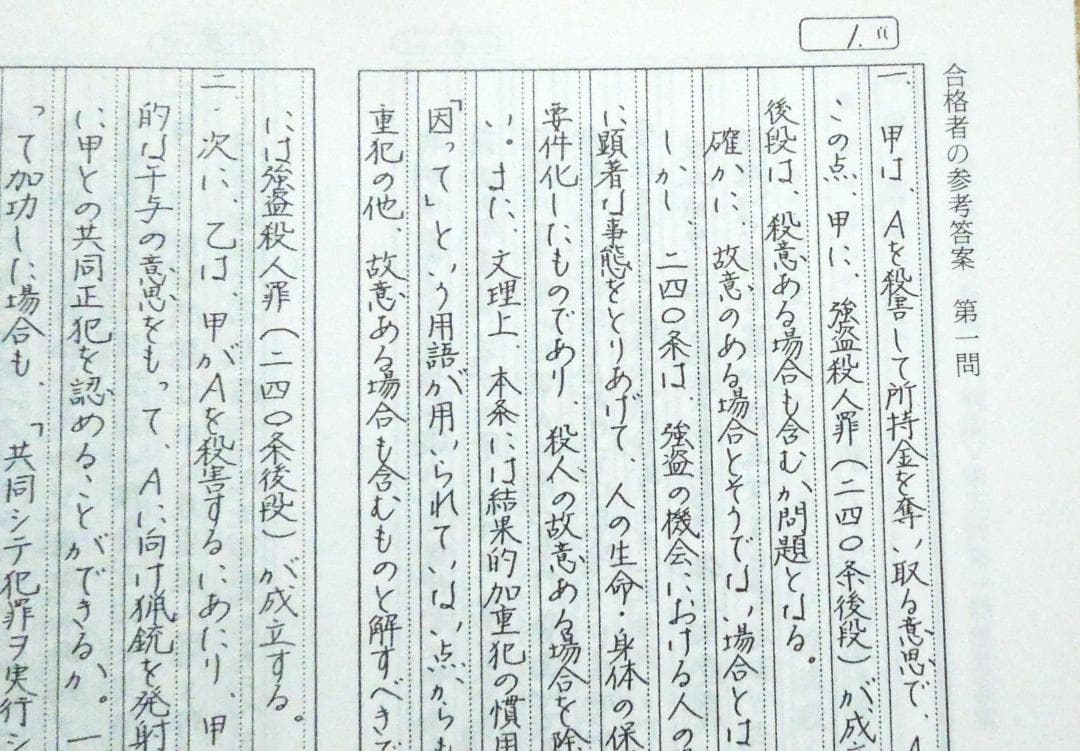 合格者の参考答案 第一問
1.
一 甲は、Aを殺害して所持金を奪い取る意思で、A
この点、甲に、強盗殺人罪(二四〇条後段)が成
後段は、殺意ある場合も含むか問題となる。
確かに、故意のある場合とそうでない場合とは
しかし、二四〇条は、強盗の機会における人の
に顕著な事態をとりあげて、人の生命・身体の保
要件化したものであり、殺人の故意ある場合を除
い。また、文理上、本条には結果的加重犯の慣用
「因って」という用語が用いられていない点からも
重犯の他、故意ある場合も含むものと解すべきで
には強盗殺人罪(二四〇条後段)が成立する。
二 次に、乙は、甲がAを殺害するにあたり、甲
的な干与の意思をもって、Aに向け猟銃を発射
に甲との共同正犯を認めることができるか。一
って加功した場合も、「共同シテ犯罪ヲ実行シ